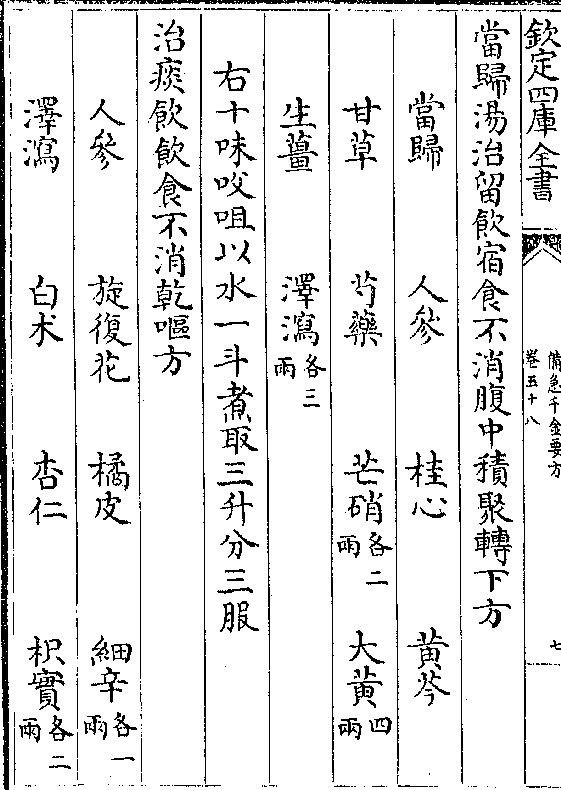 欽定四庫全書
備急千金要方
卷五十八
七
當歸湯治留飲宿食不消腹中積聚轉下方
當歸 人參 桂心 黃芩
甘草 芍藥 芒硝各二兩 大黃四兩
生薑 澤瀉各三兩
右十味㕮咀以水一斗煮取三升分三服
治痰飲飲食不消乾嘔方
人參 旋復花 橘皮 細辛各一兩
澤瀉 白朮 杏仁 枳實各二兩